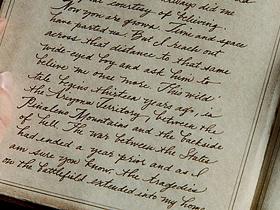 always did me
the courtesy of believing.
Now you are grown. Time and space
have parted us. But I reach out
across that distance to that same
wide-eyed boy and ask him to
believe me once more. This wild
tale begins thirteen years ago, in
the Arizona Territory, between the
Pinaleno Mountains and the backside
of hell. The war between the States
had ended a year prior and as I
am sure you know, the tragedies
on the battlefield extended into my home